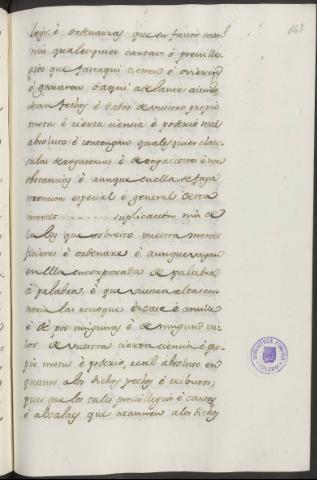 141
leys é ordenanzas que en favor sean
nin qualesquier cartas é preville-
gios que fasta qui tienen é ovieren
é ganaren daqui adelante aiendo
sean fechos é dados de vuestro propio
motu é cierta ciencia é poderio real
absoluto é contengan qualesquier clau-
sulas derogatorias é derogaciones é non
obstancias é aunque en ella se faga
mencion especial é general desta
merced suplicacion nin de
la ley que sobre esto vuestra merced
ficiere é ordenare é aunque vayan
en ella encorporada de palabra
á palabra, é que vuestra alta señ-
noria las revoque é case é anulle
é dé por ningunas é de ningund va-
lor de vuestra cierta ciencia é pro-
pio motu é poderio real absoluto en
quanto á los dichos pechos é tributos;
pues que los tales previllegios é cartas
é alvalaes que atannen á los dichos
BIBLIOTECA PUBLICA
TOLEDO